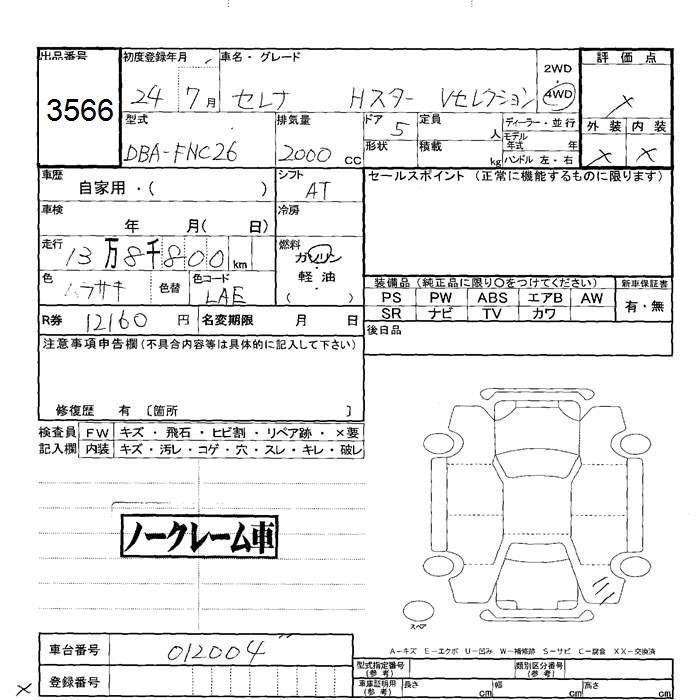 出品番号 初度登録年月 車名・グレード 2WD 評価点
3566 24 7月 セレナ Hスター Vセレクション 4WD ×
型式 排気量 ドア 定員 ディーラー・並行 外装 内装
DBA-FNC26 2000cc 5 人 モデル年式 年 × ×
形状 積載 kg ハンドル 左・右
車歴 シフト セールスポイント (正常に機能するものに限ります)
自家用・( ) AT
車検 冷房
年 月( 日)
走行 燃料
13万8千800km ガソリン
軽・油
色 色替 色コード ( )
ムラサキ LAE
装備品 (純正品に限り○をつけてください) 新車保証書
PS PW ABS エアB AW 有・無
SR ナビ TV カワ
R券 12160円 名変期限 月 日
後日品
注意事項申告欄(不具合内容等は具体的に記入して下さい)
修復歴 有 〔箇所 〕
検査員 FW キズ・飛石・ヒビ割・リペア跡・×要
記入欄 内装 キズ・汚レ・コゲ・穴・スレ・キレ・破レ
ノークレーム車
スペア
A-キズ E-エクボ U-凹み W-補修跡 S-サビ C-腐食 XX-交換済
車台番号 012004
型式指定番号(参考) 類別区分番号(参考)
× 登録番号
車庫証明用(参考) 長さ cm 幅 cm 高さ cm